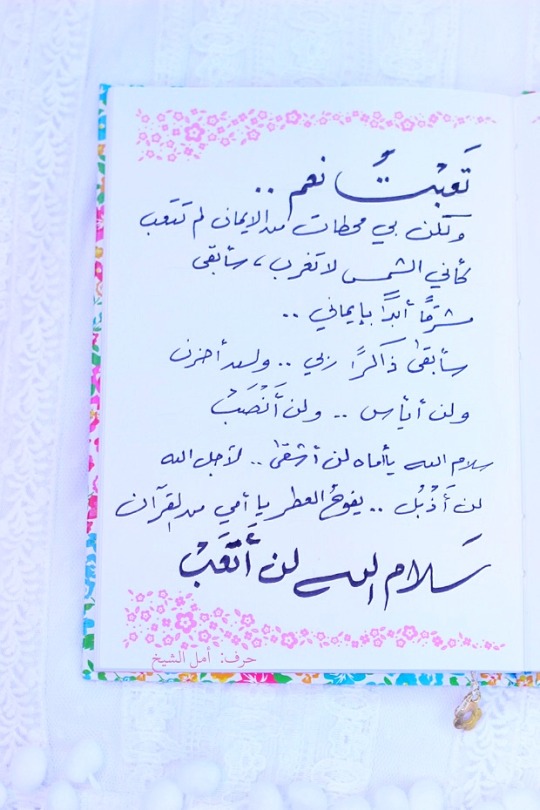 تَعِبْتُ نعم ..
ولكن بي محطات من الايمان لم تتعب
كأني الشمس لا تغرب ، سأبقى
مشرقًا أبدًا بإيماني ..
سأبقى ذَاكرًا ربي .. ولن أحزن
ولن أيأس .. ولن أَنْصَبْ
سلام الله يا أماه لن أشقى .. لأجل الله
لن أَذْبُل .. يفوحُ العطر يا أمي من القرآن
سَلام الله لن أَتْعَبْ
حرف: أمل الشيخ